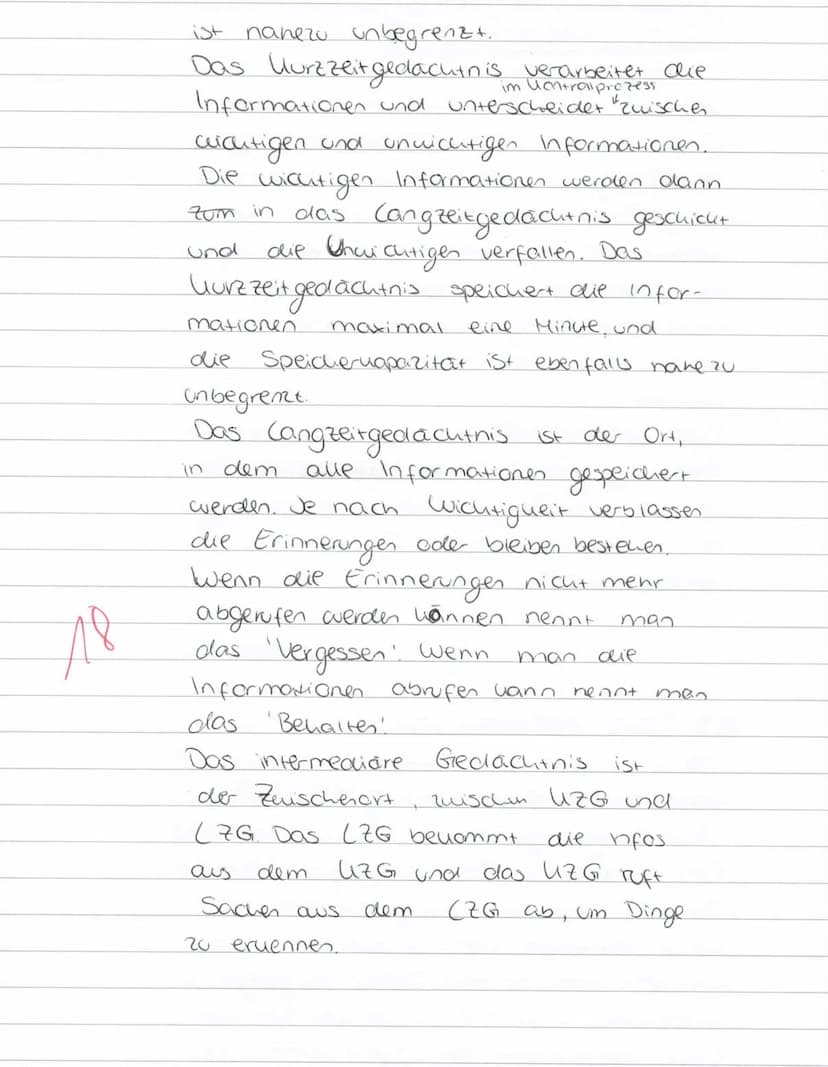 ist nahezu unbegrenzt.
Das Kurzzeitgedächtnis verarbeitet die
im Kontrollprozess
Informationen und unterscheidet zwischen
wichtigen und unwichtigen Informationen.
Die wichtigen Informationen werden dann
zum in das Langzeitgedächtnis geschickt
und die Unwichtigen verfallen. Das
Kurzzeitgedächtnis speichert die Infor-
mationen maximal eine Minute, und
die Speicherkapazität ist ebenfalls nahezu
unbegrenzt.
Das Langzeitgedächtnis ist der Ort,
in dem alle Informationen gespeichert
werden. Je nach Wichtigkeit verblassen
die Erinnerungen oder bleiben bestehen.
Wenn die Erinnerungen nicht mehr
abgerufen werden können nennt man
18
das 'Vergessen'. Wenn man die
Informationen abrufen kann nennt man
das 'Behalten'.
Das intermediäre Gedächtnis ist
der Zwischenort, zwischen KZG und
LZG. Das LZG bekommt die Infos
aus dem KZG und das KZG ruft
Sachen aus dem LZG ab, um Dinge
zu erkennen.